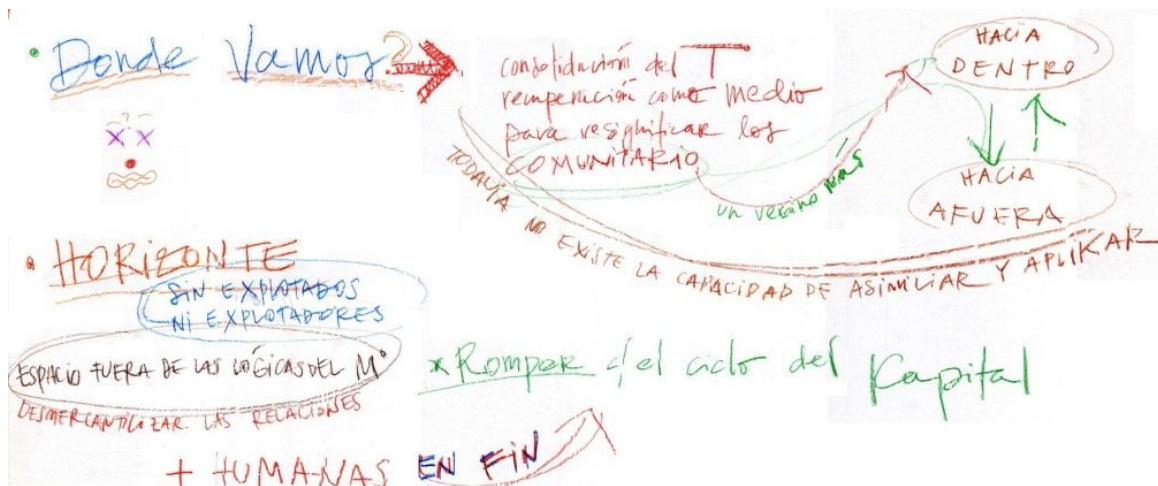 Donde Vamos?
consolidación del T
recuperación como medio
para resignificar los
COMUNITARIO
un vecino más
HACIA
DENTRO
HACIA
AFUERA
TODAVIA NO EXISTE LA CAPACIDAD DE ASIMILIAR Y APLIKAR
HORIZONTE
SIN EXPLOTADOS
NI EXPLOTADORES
ESPACIO FUERA DE LAS LÓGICAS DEL Mº
DESMERCANTILIZAR LAS RELACIONES
+ HUMANAS EN FIN
*Romper c/el ciclo del Kapital